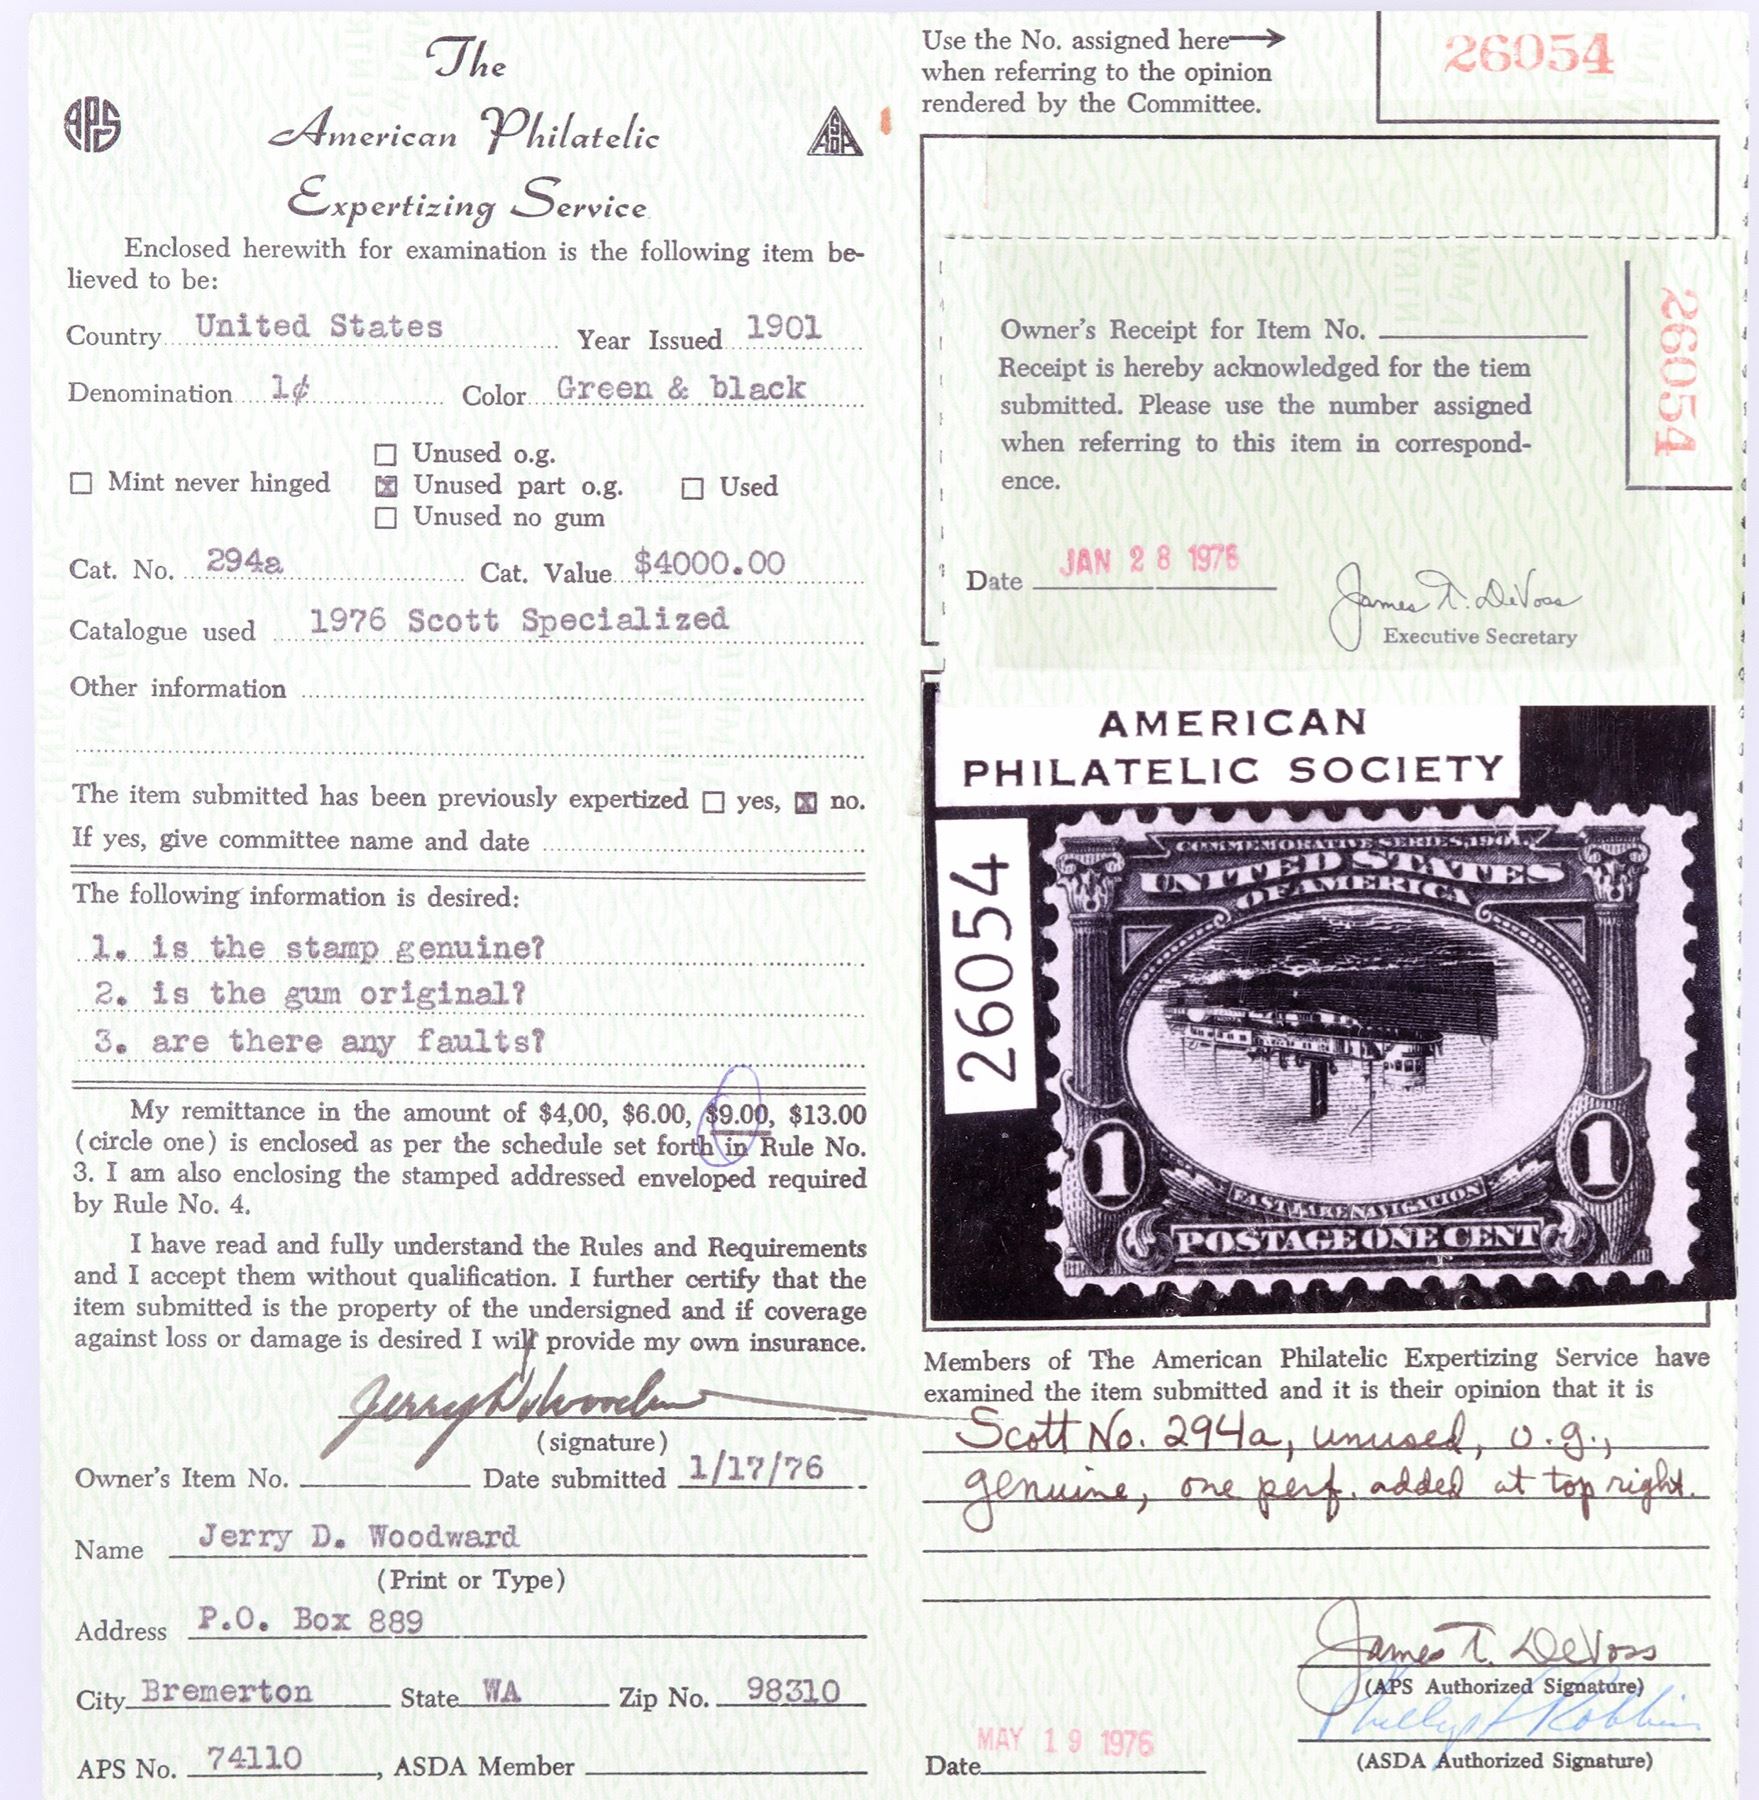 The
American Philatelic
Expertizing Service
APS
ASDA
Enclosed herewith for examination is the following item be-
lieved to be:
Country United States Year Issued 1901
Denomination 1¢ Color Green & black
Unused o.g.
Mint never hinged Unused part o.g. Used
Unused no gum
Cat. No. 294a Cat. Value $4000.00
Catalogue used 1976 Scott Specialized
Other information
The item submitted has been previously expertized yes, x no.
If yes, give committee name and date
The following information is desired:
1. is the stamp genuine?
2. is the gum original?
3. are there any faults?
My remittance in the amount of $4,00, $6.00, $9.00, $13.00
(circle one) is enclosed as per the schedule set forth in Rule No.
3. I am also enclosing the stamped addressed enveloped required
by Rule No. 4.
I have read and fully understand the Rules and Requirements
and I accept them without qualification. I further certify that the
item submitted is the property of the undersigned and if coverage
against loss or damage is desired I will provide my own insurance.
Jerry D. Woodward
(signature)
Owner's Item No. Date submitted 1/17/76
Name Jerry D. Woodward
(Print or Type)
Address P.O. Box 889
City Bremerton State WA Zip No. 98310
APS No. 74110, ASDA Member
Use the No. assigned here
when referring to the opinion
rendered by the Committee.
26054
Owner's Receipt for Item No.
Receipt is hereby acknowledged for the tiem
submitted. Please use the number assigned
when referring to this item in correspond-
ence.
26054
Date JAN 28 1976
James T. DeVoss
Executive Secretary
AMERICAN
PHILATELIC SOCIETY
26054
COMMEMORATIVE SERIES, 1901
UNITED STATES
OF AMERICA
1 1
FAST LAKE NAVIGATION
POSTAGE ONE CENT
Members of The American Philatelic Expertizing Service have
examined the item submitted and it is their opinion that it is
Scott No. 294a, unused, o.g.,
genuine, one perf. added at top right.
James T. DeVoss
(APS Authorized Signature)
(ASDA Authorized Signature)
Date MAY 19 1976